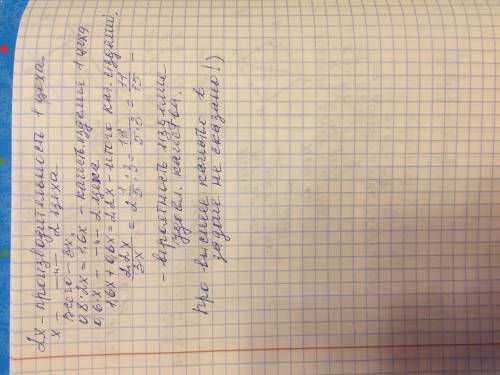 2x - производительность 1 цеха
x - -"- 2 цеха
Всего - 3x.
0,8·2x = 1,6x - качеств. изделия 1 цеха
0,6·x - -"- 2 цеха
1,6x + 0,6x = 2,2x - итого кач. изделий.
2,2x/3x = 2 1/5 : 3 = 11/5·3 = 11/15 -
- вероятность изделие
удовл. качества.
Про высшее качество в
задаче не сказано!)